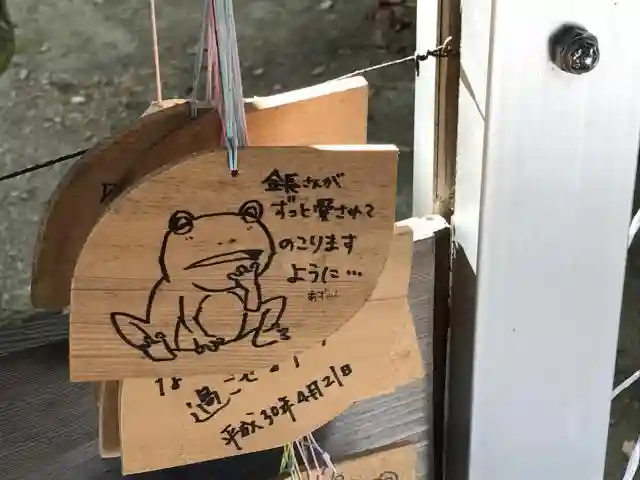 金長さんが
ずっと愛されて
のこります
ように…
過ごせ
平成30年4月21日